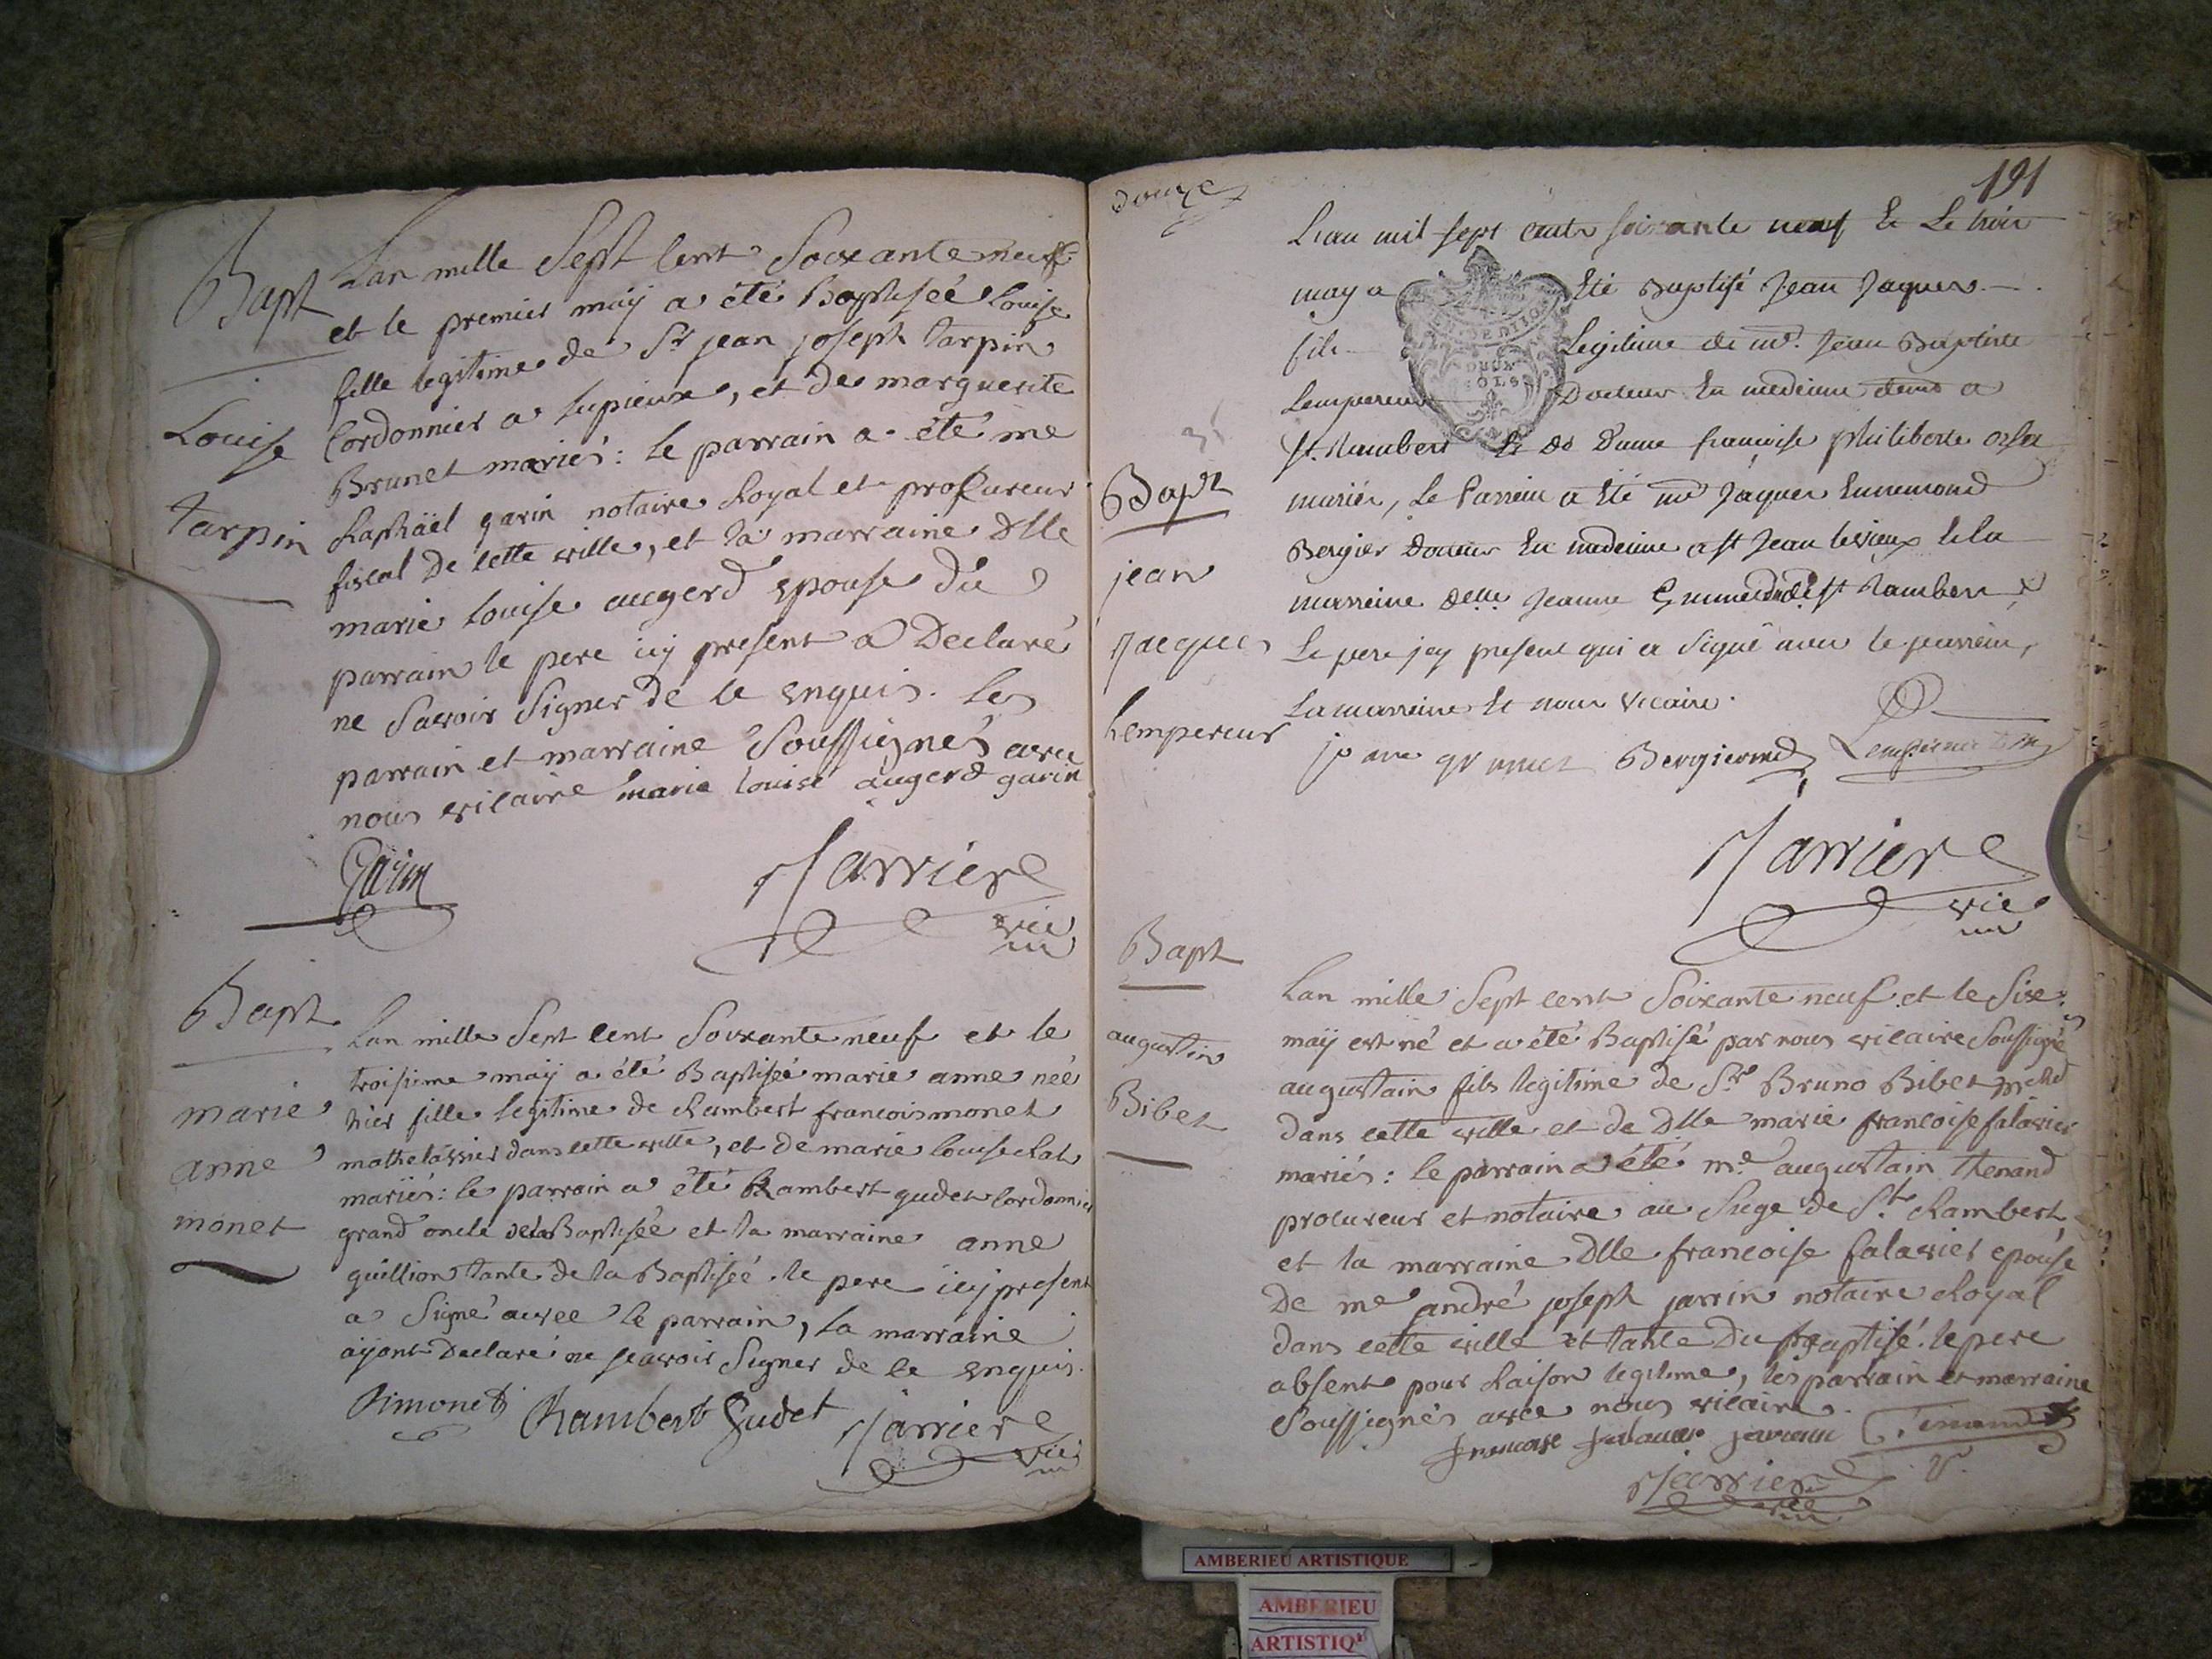 Bapt
Louise
tarpin
Lan mille Sept Cent Soixante neuf
et le premier maÿ a été Baptiseé Louise
fille legitime de Sr jean joseph tarpin
Cordonnier a lupieux, et de marguerite
Brunet mariés: le parrain a été me
Raphaël garin notaire Royal et procureur
fiscal De cette ville, et la marraine Dlle
marie louise augerd epouse du
parrain le pere icy present a Declaré
ne Savoir Signer de ce enquis. les
parrain et marraine Soussignés avec
nous vicaire marie louise augerd garin
Garin
Jarriere
vic
Bapt
marie
anne
monet
Lan mille Sept cent Soixante neuf et le
troisieme maÿ a été Baptiseé marie anne neé
hier fille legitime de Rambert francois monet
mathelassier dans cette ville, et De marie louise Rat
mariés: le parrain a été Rambert gudet Cordonnier
grand oncle de la Baptisée et la marraine anne
guillion tante de la Baptiseé. le pere icy present
a Signé avec le parrain, la marraine
aÿant Declaré ne scavoir Signer de ce enquis.
Rimonet Rambert Gudet Jarriere
vic
douze
191
Bapt
jean
jacques
Lempereur
L'an mil sept cents soixante neuf Et Le trois
may a Eté Baptisé Jean Jaques
fils Legitime de mr. Jean Baptiste
Lempereur Docteur En medecine dans a
st. Rambert Et de Dame francoise philiberte
mariés, Le Parrein a Eté mr Jaques Ennemond
Bergier docteur En medecine a st Jean levieux Et la
marreine delle Jeanne st Rambert
Le pere jcy present qui a Signé avec le parrein,
La marreine Et nous Vicaire.
Bergier md Lempereur
Jarriere
vic
DEUX
SOLS
Bapt
augustin
Bibet
Lan mille Sept cent Soixante neuf et le Six
maÿ est né et a été Baptisé par nous vicaire Soussigné
augustain fils legitime de Sr Bruno Bibet mchd
dans cette ville et de Dlle marie francoise falavier
mariés: le parrain a été me augustain thenand
procureur et notaire au Siege de St Rambert,
et la marraine Dlle francoise falavier epouse
De me andré joseph jarrin notaire Royal
dans cette ville et tante Du Baptisé. le pere
absent pour Raison legitime, les parrain et marraine
Soussignés avec nous vicaire.
francoise falavier Thenand
Jarriere
vic
AMBERIEU ARTISTIQUE
AMBERIEU
ARTISTIQU